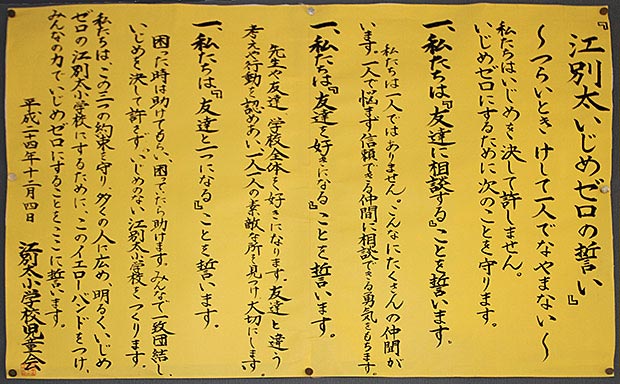 『江別太いじめゼロの誓い』
～つらいとき けして一人でなやまない～
私たちは、いじめを決して許しません。
いじめゼロにするために次のことを守ります。
一、私たちは『友達に相談する』ことを誓います。
私たちは一人ではありません。こんなにたくさんの仲間が
います。一人で悩まず信頼できる仲間に相談できる勇気をもちます。
一、私たちは『友達を好きになる』ことを誓います。
先生や友達、学校全体を好きになります。友達と違う
考えや行動を認めあい、一人一人の素敵な所を見つけ大切にします。
一、私たちは『友達と一つになる』ことを誓います。
困った時は助けてもらい、困ってたら助けます。みんなで一致団結し、
いじめを決して許さず、いじめのない江別太小学校をつくります。
私たちは、この三つの約束を守り、多くの人に広め、明るく、いじめ
ゼロの江別太小学校にするために、このイエローバンドをつけ、
みんなの力で、いじめゼロにすることをここに誓います。
平成二十四年十二月四日
江別太小学校児童会